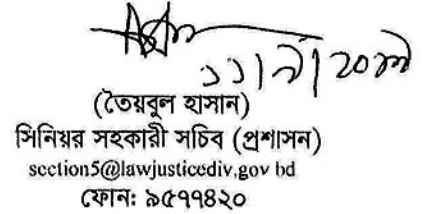 ১১|৯|২০১৭
(তৈয়বুল হাসান)
সিনিয়র সহকারী সচিব (প্রশাসন)
section5@lawjusticediv.gov bd
ফোন: ৯৫৭৭৪২০